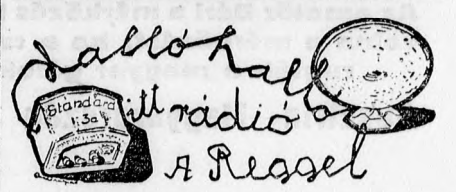 Halló halló
itt rádió
A Reggel
Standard
1:3a